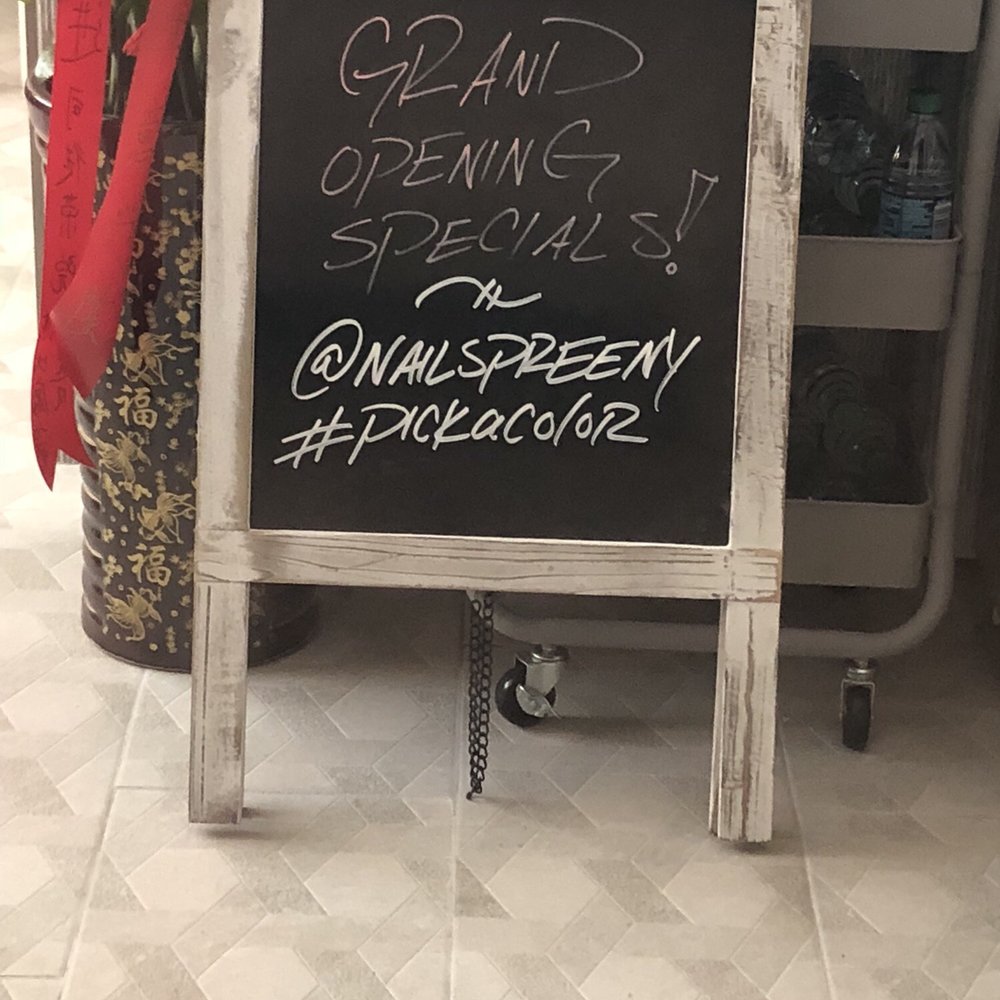 GRAND
OPENING
SPECIALS!
@NAILSPREENY
#PICKaColoR
福
福